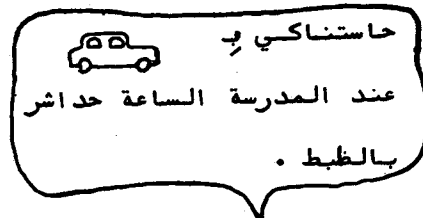 حاستناكي بِ
عند المدرسة الساعة حداشر
بالظبط .